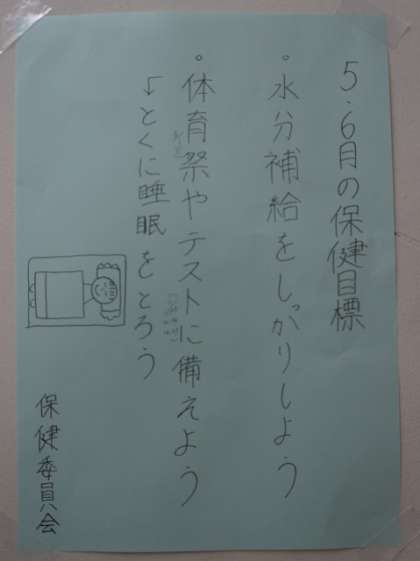 5・6月の保健目標
・水分補給をしっかりしよう
・体育祭やテストに備えよう
↳とくに睡眠をとろう
保健委員会